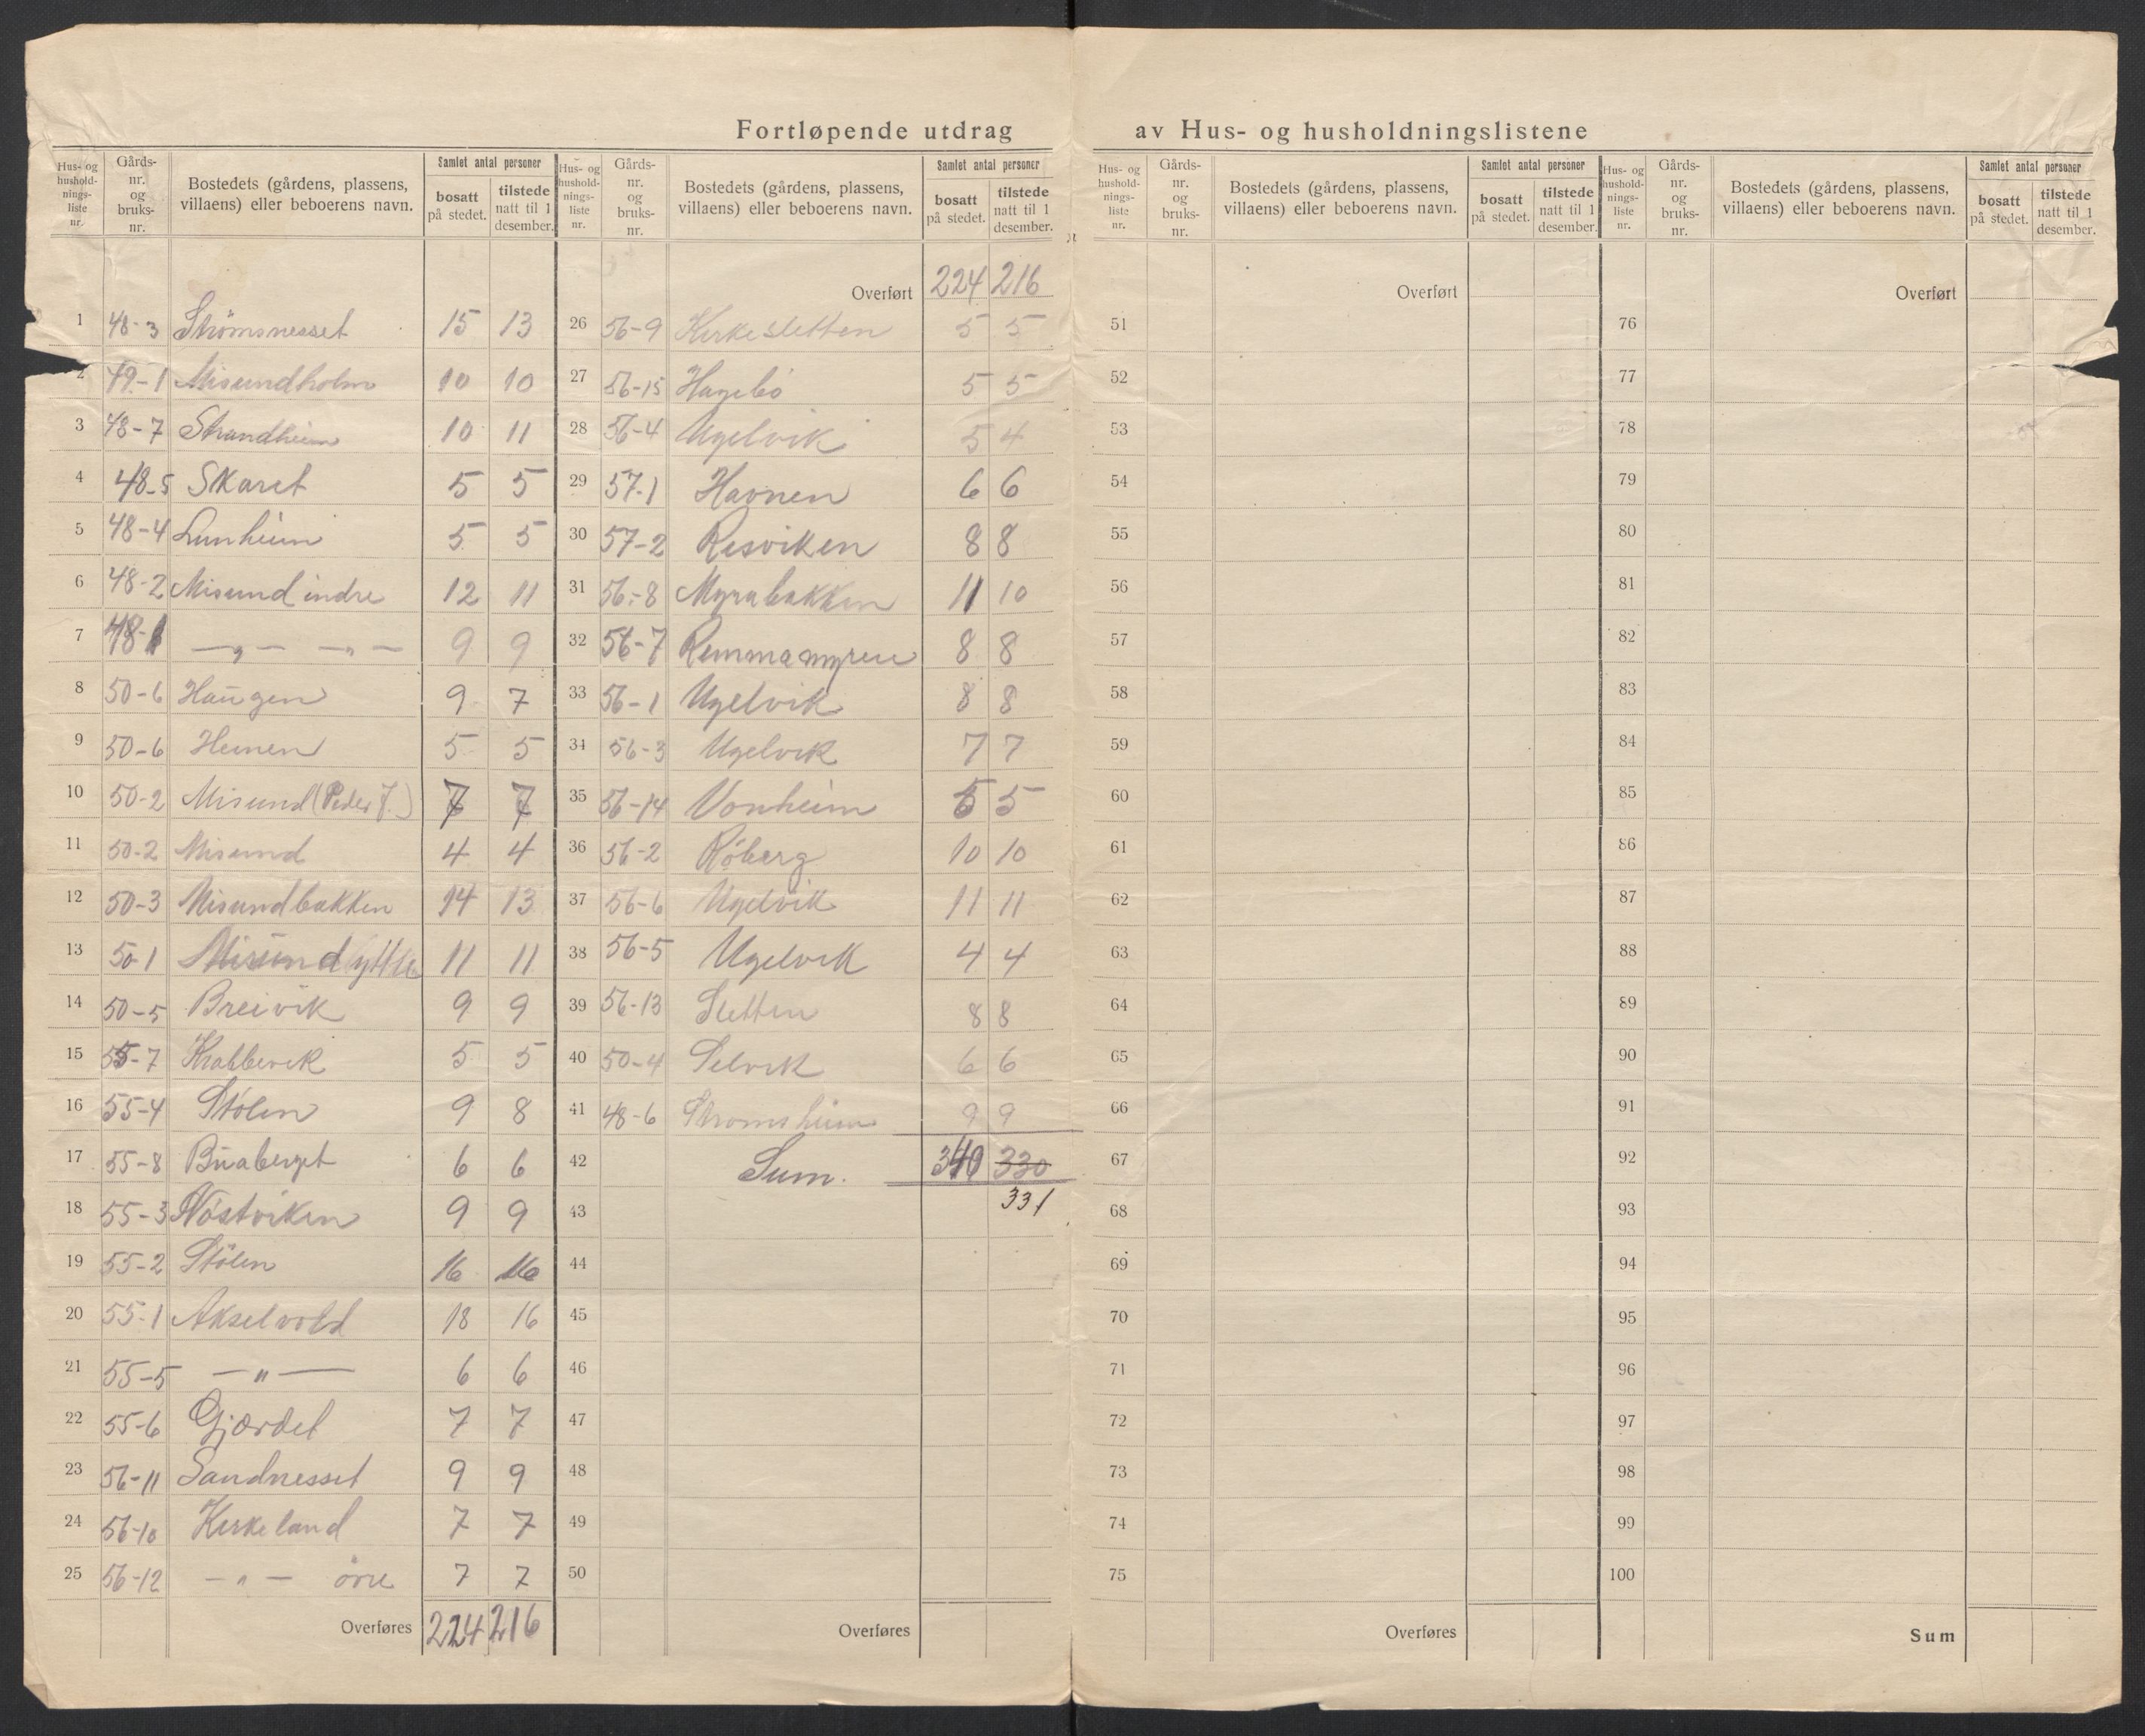 Fortløpende utdrag av Hus- og husholdningslistene
Hus- og hushold-nings-liste nr. Gårds-nr. og bruks-nr. Bostedets (gårdens, plassens, villaens) eller beboerens navn. Samlet antal personer bosatt på stedet. tilstede natt til 1 desember.
1 48-3 Strömsnesset 15 13
2 49-1 Misundholm 10 10
3 48-7 Strandheim 10 11
4 48-5 Skaret 5 5
5 48-4 Lunheim 5 5
6 48-2 Misund indre 12 11
7 48-1 —„— —„— 9 9
8 50-6 Haugen 9 7
9 50-6 Hemen 5 5
10 50-2 Misund (Peder J.) 7 7
11 50-2 Misund 4 4
12 50-3 Misundbakken 14 13
13 50-1 Misund yttre 11 11
14 50-5 Breivik 9 9
15 55-7 Krabbevik 5 5
16 55-4 Stölen 9 8
17 55-8 Buaberget 6 6
18 55-3 Nöstviken 9 9
19 55-2 Stölen 16 16
20 55-1 Akselvold 18 16
21 55-5 —„— 6 6
22 55-6 Gjærdet 7 7
23 56-11 Sandnesset 9 9
24 56-10 Kirkeland 7 7
25 56-12 —„— övre 7 7
Overføres 224 216
Hus- og hushold-nings-liste nr. Gårds-nr. og bruks-nr. Bostedets (gårdens, plassens, villaens) eller beboerens navn. Samlet antal personer bosatt på stedet. tilstede natt til 1 desember.
Overført 224 216
26 56-9 Kirkesletten 5 5
27 56-15 Hagebö 5 5
28 56-4 Ugelvik 5 4
29 57.1 Havnen 6 6
30 57-2 Resviken 8 8
31 56-8 Myrabakken 11 10
32 56-7 Remmamyren 8 8
33 56-1 Ugelvik 8 8
34 56-3 Ugelvik 7 7
35 56-14 Vonheim 5 5
36 56-2 Röberg 10 10
37 56-6 Ugelvik 11 11
38 56-5 Ugelvik 4 4
39 56-13 Sletten 8 8
40 50-4 Selvik 6 6
41 48-6 Stromsheim 9 9
42 Sum. 340 330
43 331
44
45
46
47
48
49
50
Overføres
Hus- og hushold-nings-liste nr. Gårds-nr. og bruks-nr. Bostedets (gårdens, plassens, villaens) eller beboerens navn. Samlet antal personer bosatt på stedet. tilstede natt til 1 desember.
Overført
51
52
53
54
55
56
57
58
59
60
61
62
63
64
65
66
67
68
69
70
71
72
73
74
75
Overføres
Hus- og hushold-nings-liste nr. Gårds-nr. og bruks-nr. Bostedets (gårdens, plassens, villaens) eller beboerens navn. Samlet antal personer bosatt på stedet. tilstede natt til 1 desember.
Overført
76
77
78
79
80
81
82
83
84
85
86
87
88
89
90
91
92
93
94
95
96
97
98
99
100
Sum